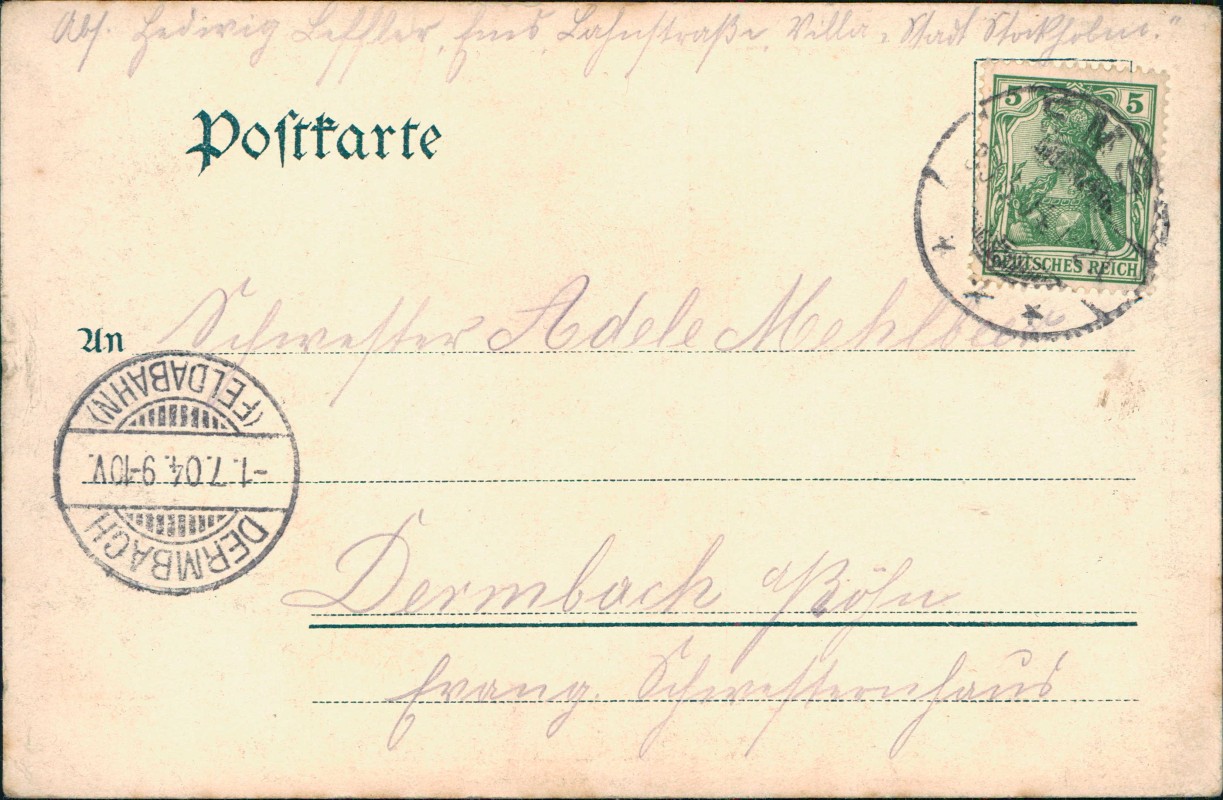 Abs. Hedwig Leffler, Ems, Lahnstraße, Villa "Stadt Stockholm."
Postkarte
5 5
EMS
DEUTSCHES REICH
An Schwester Adele
(FELDABAHN)
-1.7.04. 9-10V.
DERMBACH
Dermbach a/Röhn
Evang. Schwesternhaus